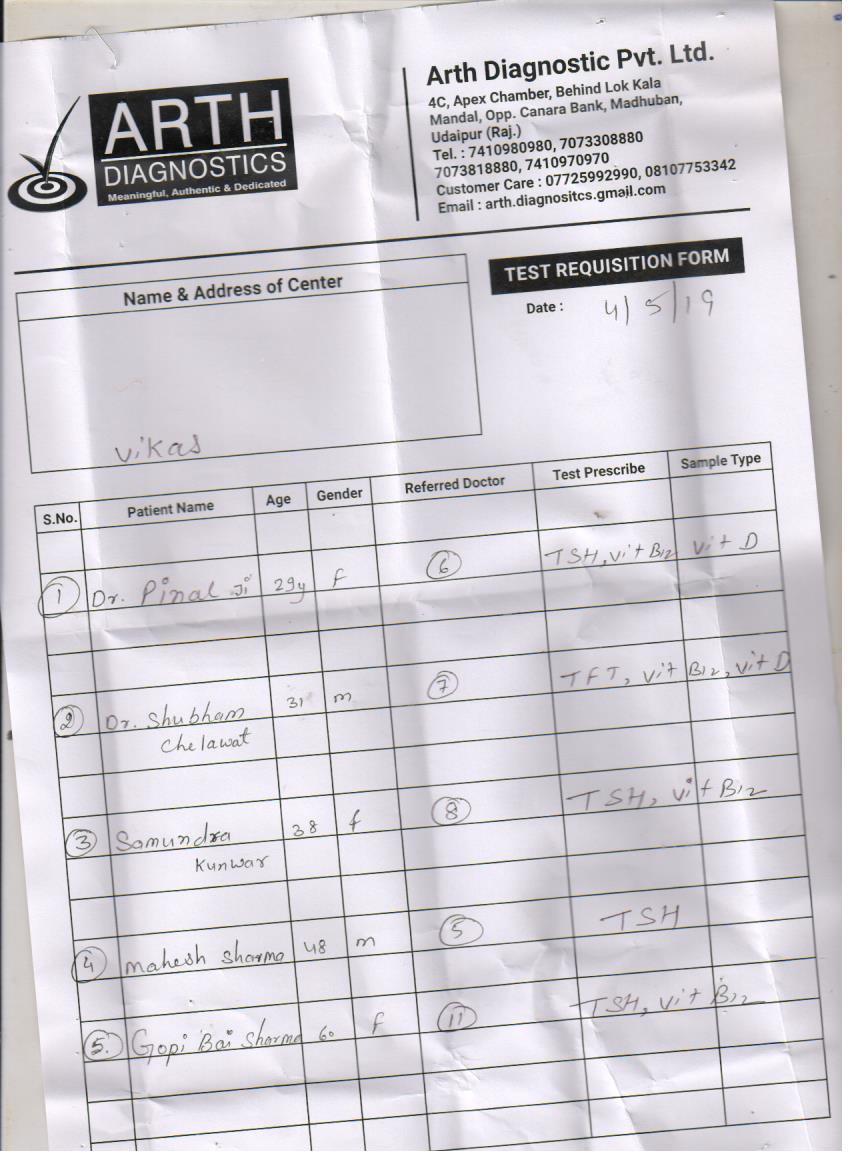 ARTH
DIAGNOSTICS
Meaningful, Authentic & Dedicated
Arth Diagnostic Pvt. Ltd.
4C, Apex Chamber, Behind Lok Kala
Mandal, Opp. Canara Bank, Madhuban,
Udaipur (Raj.)
Tel. : 7410980980, 7073308880
7073818880, 7410970970
Customer Care : 07725992990, 08107753342
Email : arth.diagnositcs.gmail.com
Name & Address of Center
TEST REQUISITION FORM
Date : 4/5/19
Vikas
S.No. Patient Name Age Gender Referred Doctor Test Prescribe Sample Type
1 Dr. Pinal Ji 29y f 6 TSH, vit B12 vit D
2 Dr. Shubham 31 m 7 TFT, vit B12, vit D
Chelawat
3 Samundra 38 f 8 TSH, vit B12
Kunwar
4 Mahesh Sharma 48 m 5 TSH
5. Gopi Bai Sharma 60 f 11 TSH, vit B12